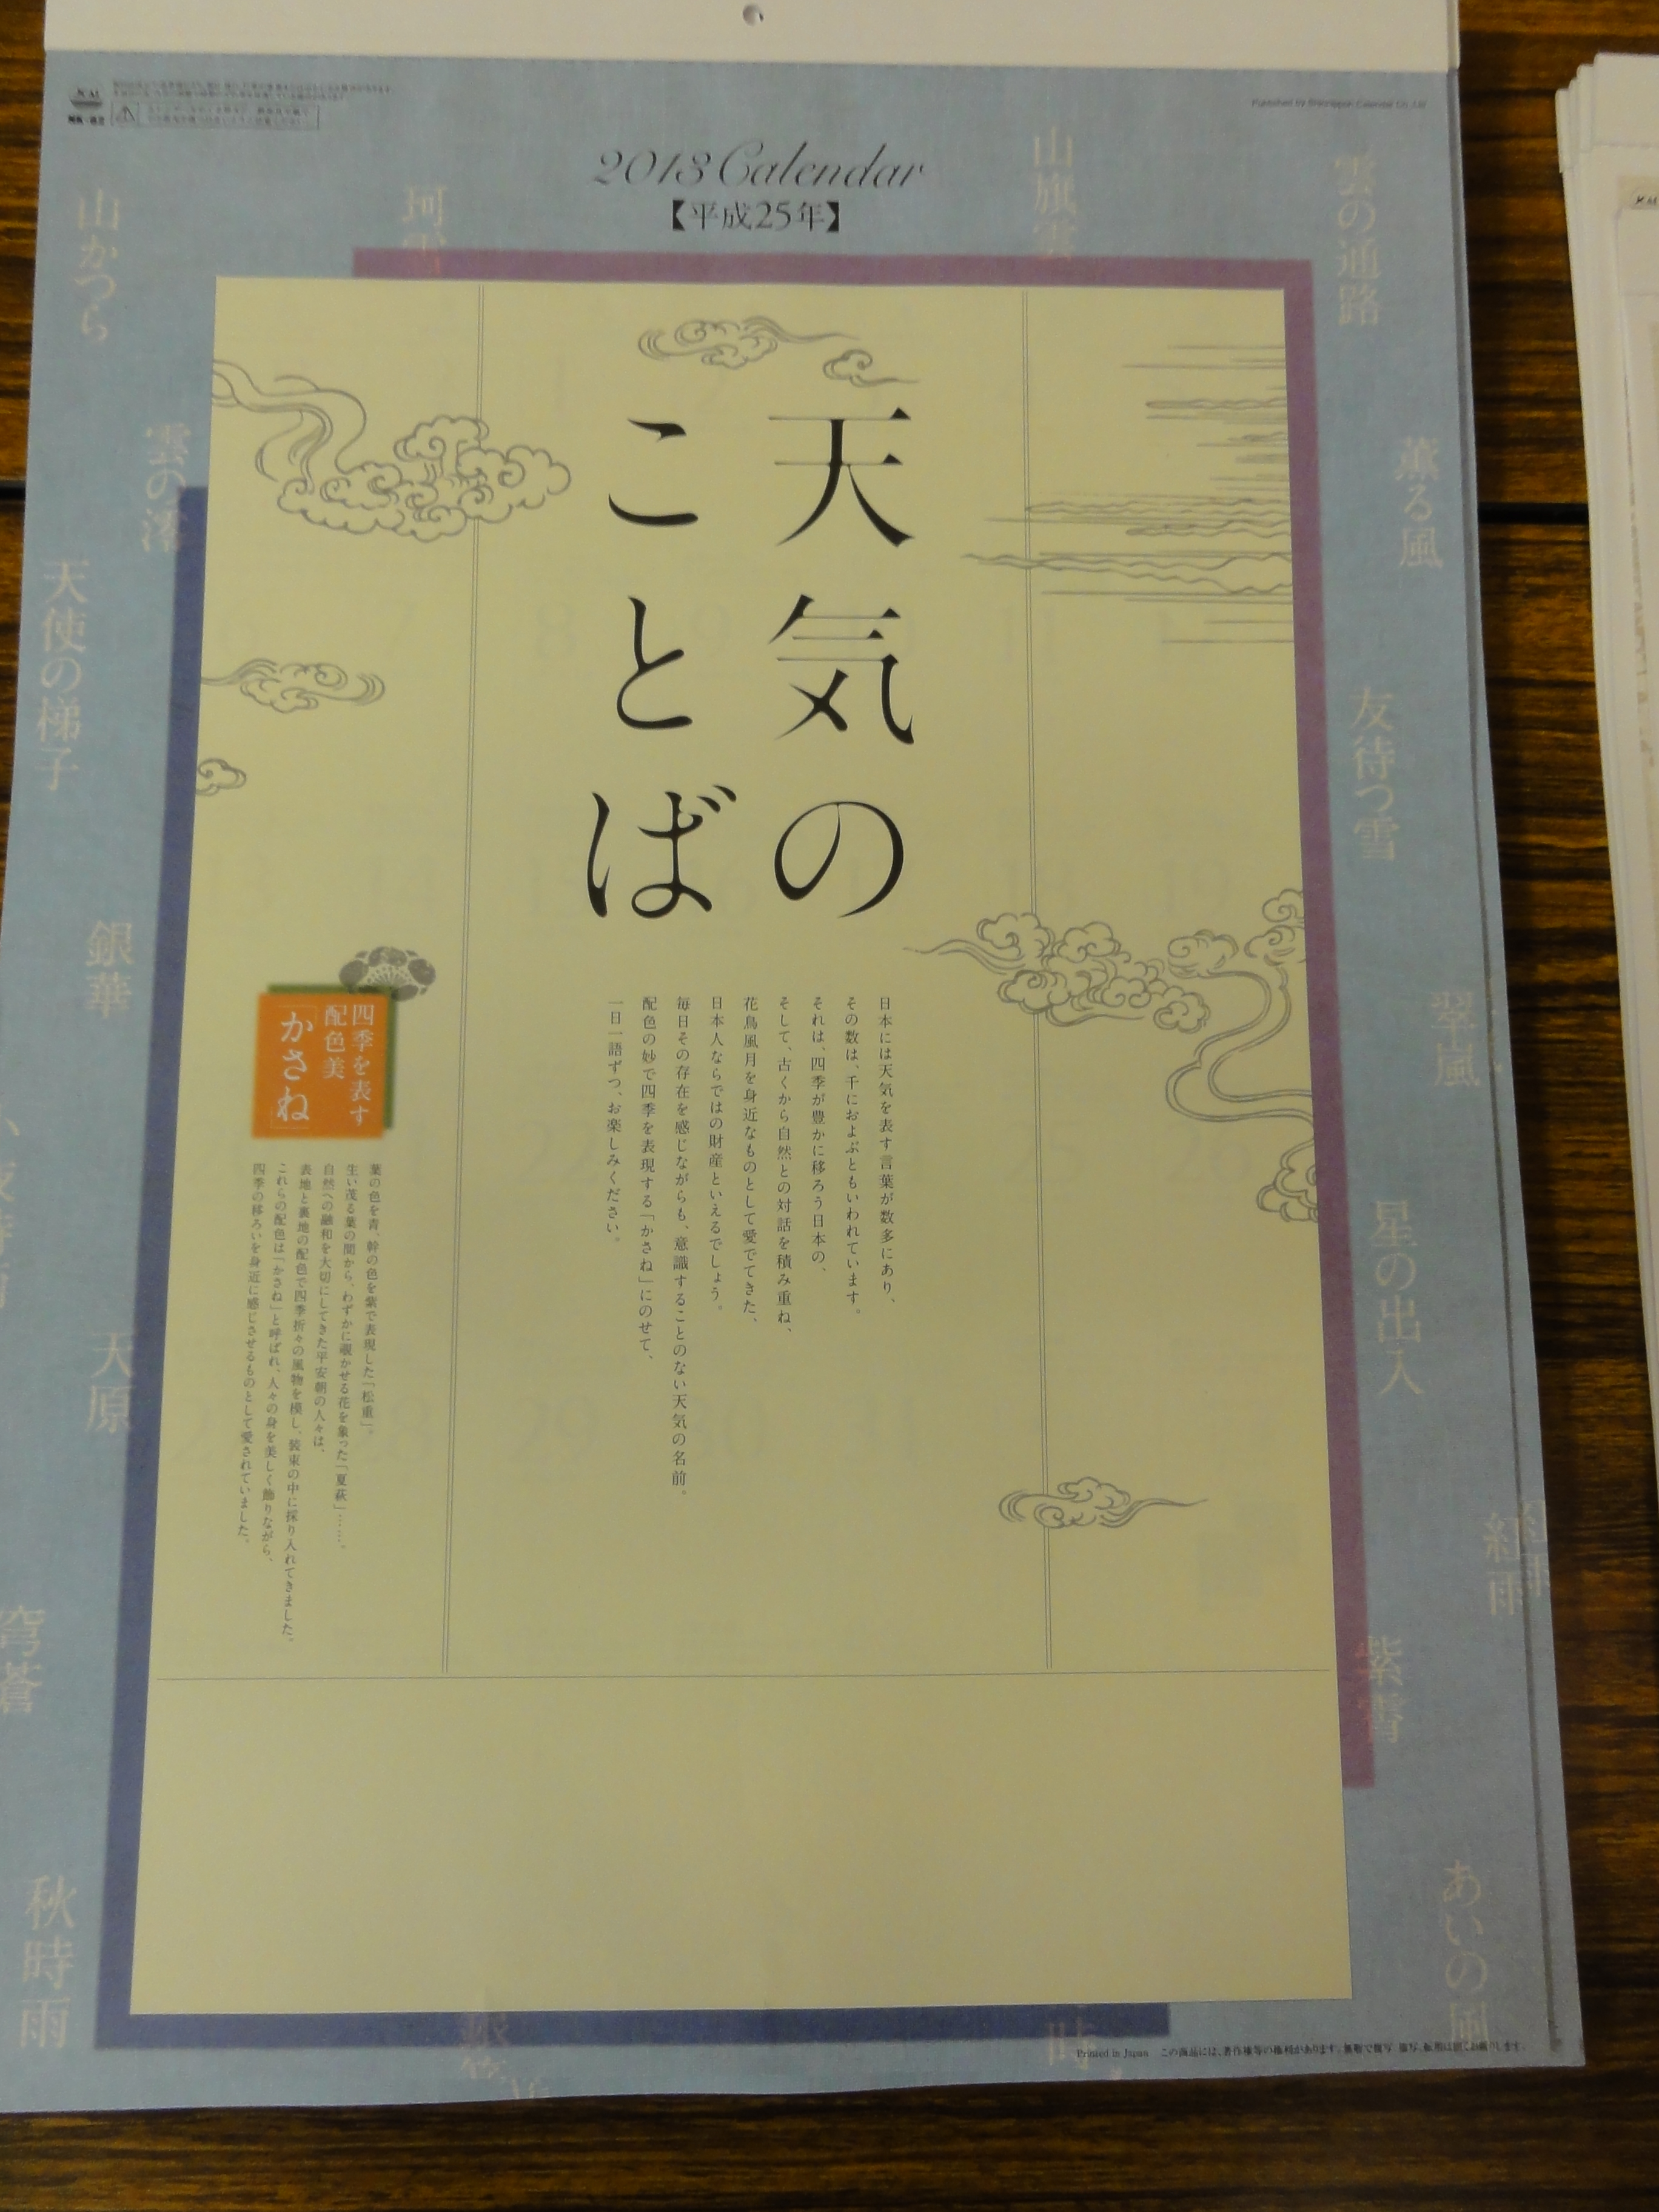 Published by Shinnippon Calendar Co.,Ltd.
2013 Calendar
【平成25年】
天気の
ことば
日本には天気を表す言葉が数多にあり、
その数は、千におよぶともいわれています。
それは、四季が豊かに移ろう日本の、
そして、古くから自然との対話を積み重ね、
花鳥風月を身近なものとして愛でてきた、
日本人ならではの財産といえるでしょう。
毎日その存在を感じながらも、意識することのない天気の名前。
配色の妙で四季を表現する「かさね」にのせて、
一日一語ずつ、お楽しみください。
四季を表す
配色美
「かさね」
葉の色を青、幹の色を紫で表現した「松重」。
生い茂る葉の間から、わずかに覗かせる花を象った「夏萩」……。
自然への融和を大切にしてきた平安朝の人々は、
表地と裏地の配色で四季折々の風物を模し、装束の中に採り入れてきました。
これらの配色は「かさね」と呼ばれ、人々の身を美しく飾りながら、
四季の移ろいを身近に感じさせるものとして愛されていました。
雲の通路
薫る風
友待つ雪
翠風
星の出入
紅雨
紫霄
あいの風
山旗雲
珂雪
山かつら
雲の澪
天使の梯子
銀華
天原
穹蒼
秋時雨
時
Printed in Japan この商品には、著作権等の権利があります。無断で複写、